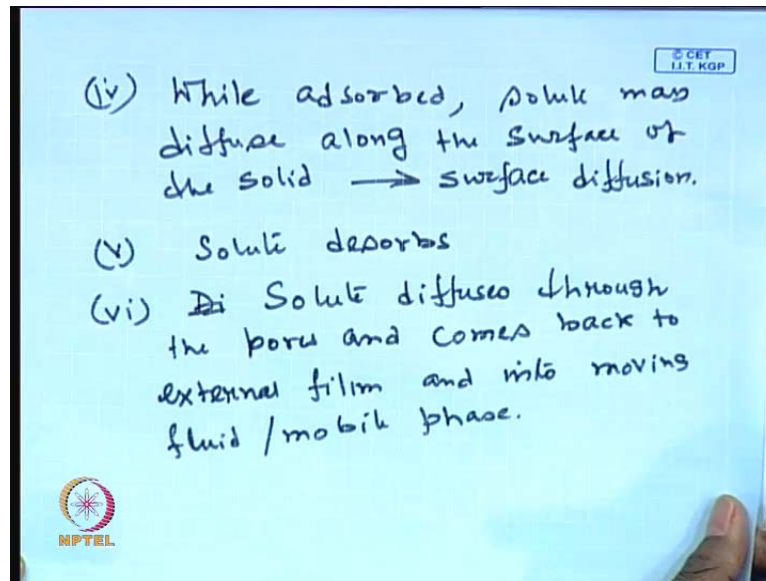 © CET
I.I.T. KGP
(iv) While adsorbed, solute may
diffuse along the surface of
the solid → surface diffusion.
(v) Solute desorbs
(vi) Di Solute diffuses through
the pores and comes back to
external film and into moving
fluid / mobile phase.
NPTEL